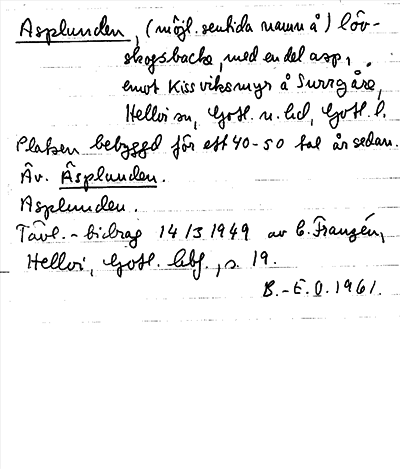 Asplunden, (möjl. sentida namn å) löv-
skogsbacke, med en del asp,
emot Kissviksmyr å Surrgåre,
Hellvi sn, Gotl. n. hd, Gotl. l.
Platsen bebyggd för ett 40-50 tal år sedan.
Äv. Äsplunden.
Asplunden.
Tävl.-bidrag 14/3 1949 av C. Franzén,
Hellvi, Gotl. , s. 19.
B.-E.O. 1961.